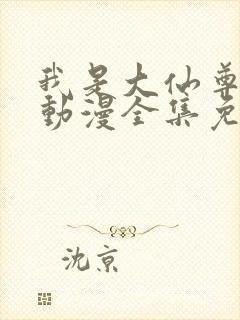 我是大仙尊
動漫全集免
沈京